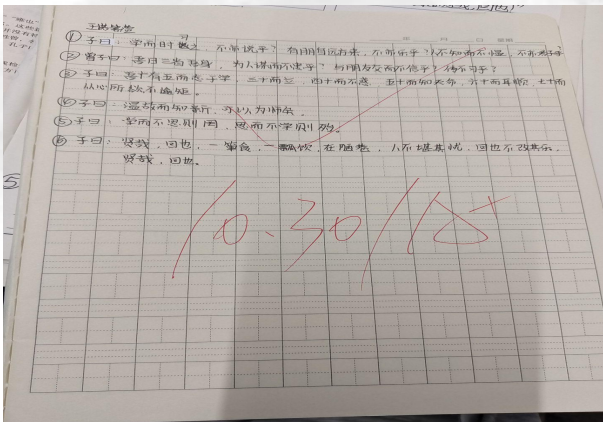 ①子曰:学而时习之,不亦说乎?有朋自远方来,不亦乐乎?人不知而不愠,不亦君子乎
②曾子曰:吾日三省吾身,为人谋而不忠乎?与朋友交而不信乎?传不习乎?
③子曰:吾十有五而志于学,三十而立,四十而不惑,五十而知天命,六十而耳顺,七十而
从心所欲不逾矩。
④子曰:温故而知新,可以为师矣。
⑤子曰:学而不思则罔,思而不学则殆。
⑥子曰:贤哉,回也,一箪食,一瓢饮,在陋巷,人不堪其忧,回也不改其乐,
贤哉,回也。
10.30